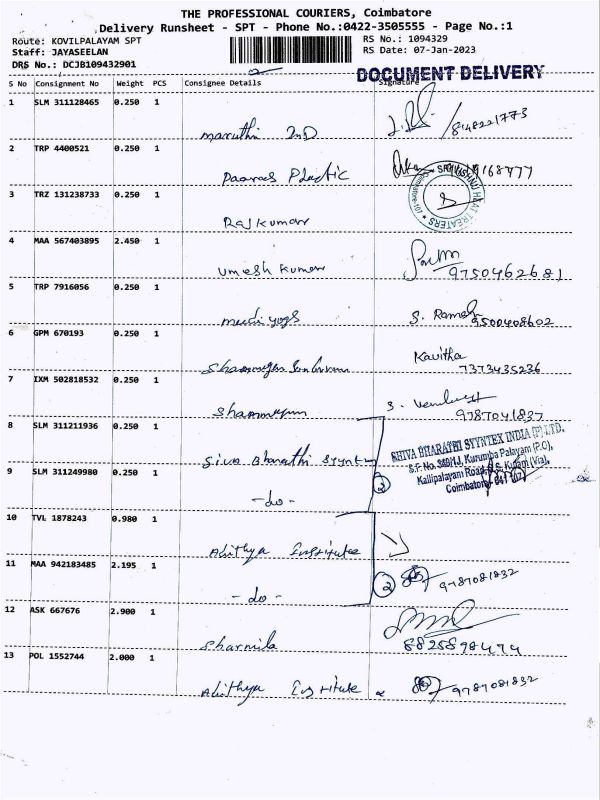 THE PROFESSIONAL COURIERS, Coimbatore
Delivery Runsheet - SPT - Phone No.:0422-3505555 - Page No.:1
Route: KOVILPALAYAM SPT
RS No.: 1094329
Staff: JAYASEELAN
RS Date: 07-Jan-2023
DRS No.: DCJB109432901
DOCUMENT DELIVERY
S No Consignment No Weight PCS Consignee Details Signature
1 SLM 311128465 0.250 1
Maruthi IND 8148221773
2 TRP 4400521 0.250 1
Paaras Plastic
3 TRZ 131238733 0.250 1
SRI VISHNU HEAT TREATERS
Rajkumar
4 MAA 567403895 2.450 1
Umesh Kumar 9750462681
5 TRP 7916056 0.250 1
S. Ramesh
9500408602
6 GPM 670193 0.250 1
Kavitha
7373435236
7 IXM 502818532 0.250 1
Shanmugam 9787041837
8 SLM 311211936 0.250 1
Siva Bharathi Syyntex
SHIVA BHARATHI SYYNTEX INDIA (P) LTD.
Kurumba Palayam (P.O),
Kallipalayam Road, S.S. Kulam (Via),
Coimbatore
9 SLM 311249980 0.250 1
2
- do -
10 TVL 1878243 0.980 1
Adithya Institute
11 MAA 942183485 2.195 1
2 9787081832
- do -
12 ASK 667676 2.900 1
Sharmila 8825898474
13 POL 1552744 2.000 1
Adithya Institute 9787081832